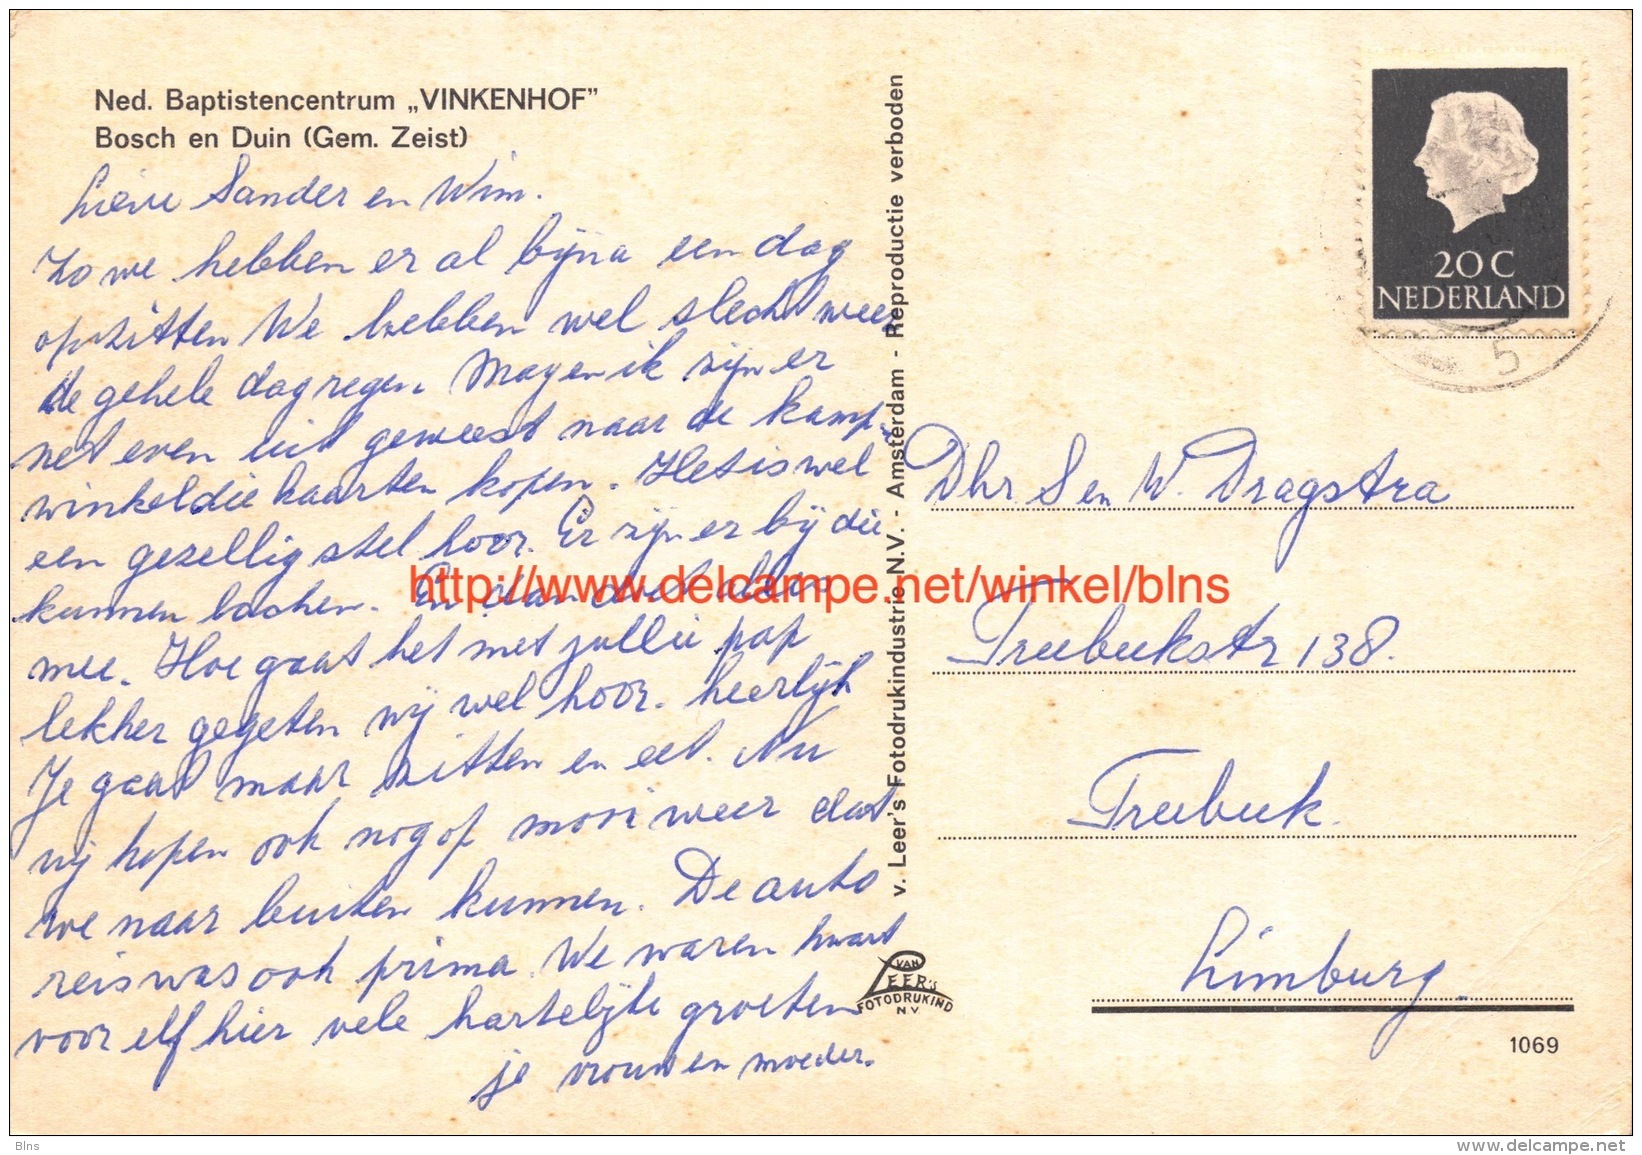 Ned. Baptistencentrum „VINKENHOF”
Bosch en Duin (Gem. Zeist)
Lieve Sander en Wim.
Zo we hebben er al bijna een dag
opzitten We hebben wel slecht weer
de gehele dag regen. Mayen ik zijn er
net even uit geweest naar de kamp-
winkel die kaarten kopen. Het is wel
een gezellig stel hoor. Er zijn er bij die
kunnen lachen. En dan doet alles
mee. Hoe gaat het met jullie pap
lekker gegeten wij wel hoor. heerlijk
Je gaat maar zitten en eet. Nu
wij hopen ook nog op mooi weer dat
we naar buiten kunnen. De auto
reis was ook prima. We waren kwart
voor elf hier vele hartelijke groeten
je vrouw en moeder.
v. Leer's Fotodrukindustrie N.V. - Amsterdam - Reproductie verboden
VAN LEER'S
FOTODRUKIND
NV
20 C
NEDERLAND
5
Dhr S en W. Dragstra
Treebeekstr 138.
Treebeek.
Limburg.
1069
http://www.delcampe.net/winkel/blns
Blns
www.delcampe.net